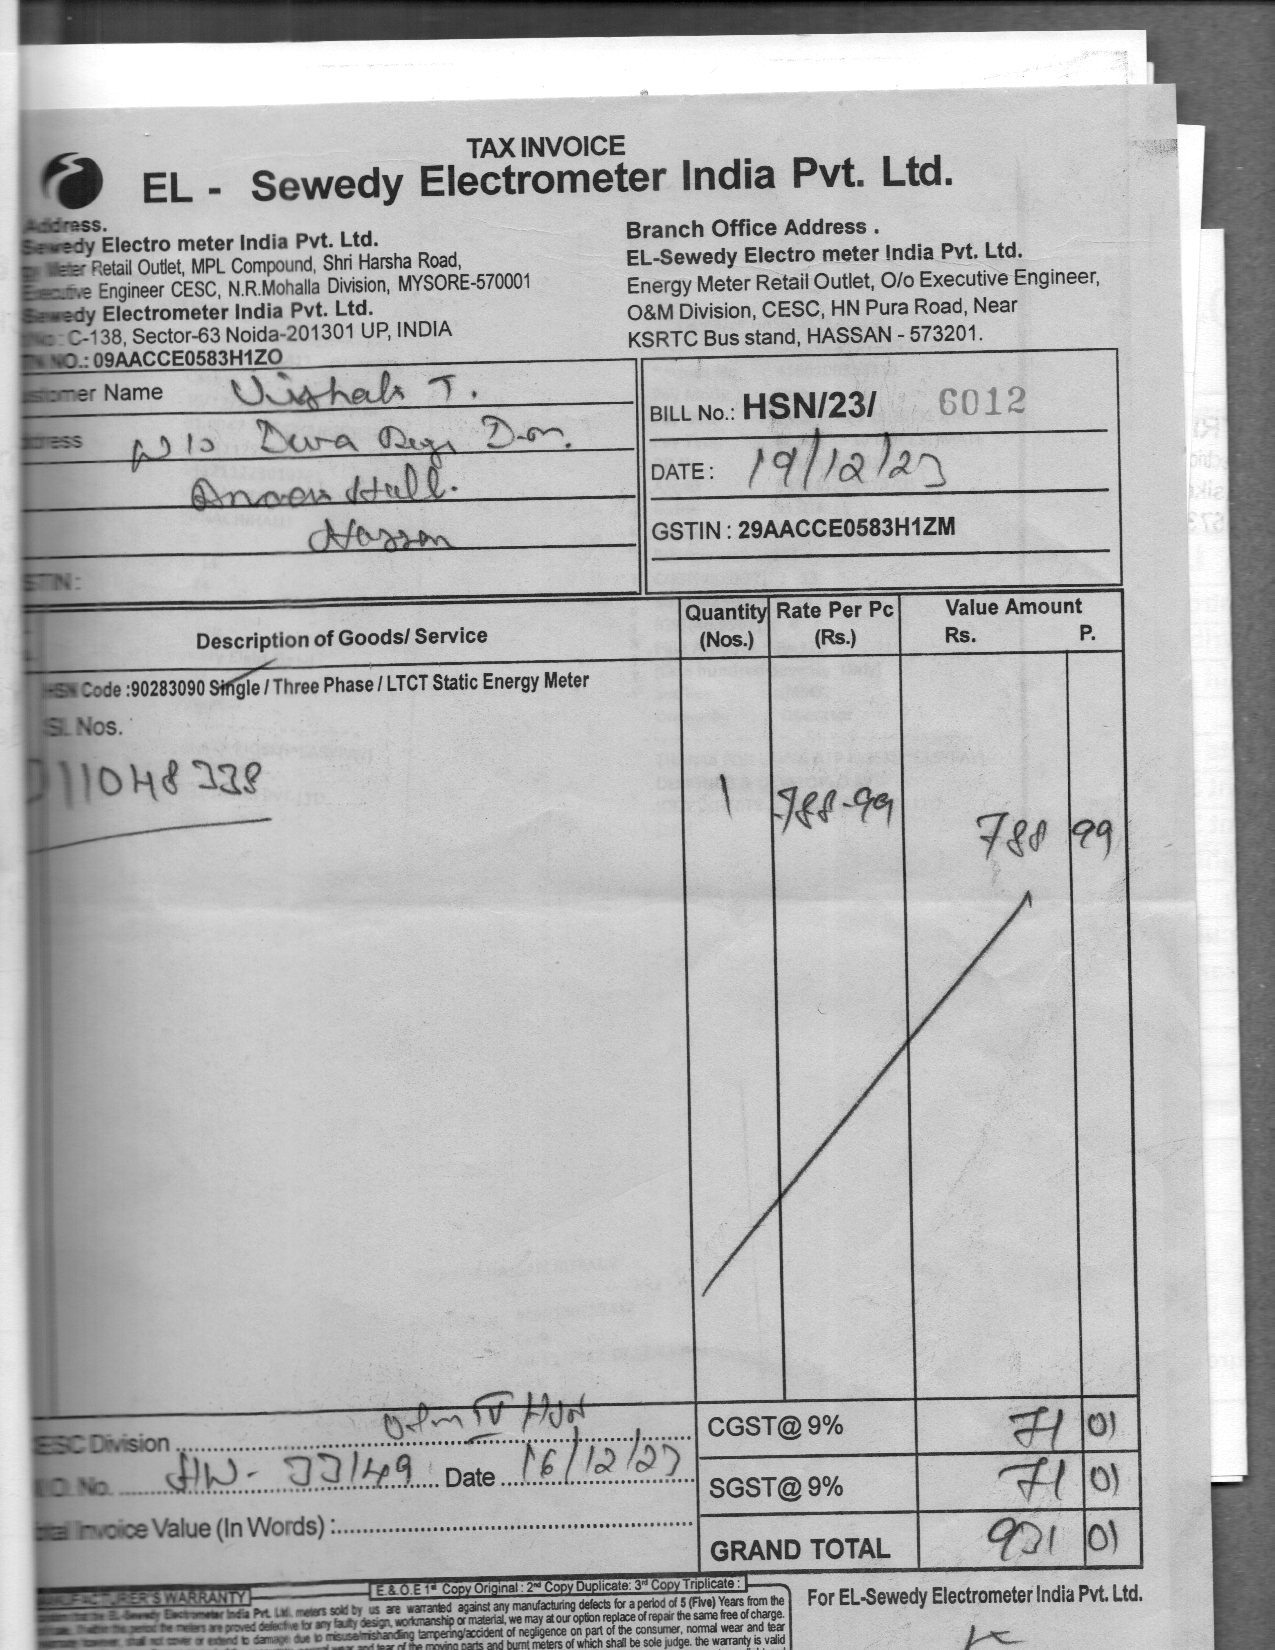 TAX INVOICE
EL - Sewedy Electrometer India Pvt. Ltd.
Address.
Sewedy Electro meter India Pvt. Ltd.
Meter Retail Outlet, MPL Compound, Shri Harsha Road,
Executive Engineer CESC, N.R.Mohalla Division, MYSORE-570001
Sewedy Electrometer India Pvt. Ltd.
C-138, Sector-63 Noida-201301 UP, INDIA
NO.: 09AACCE0583H1ZO
Branch Office Address .
EL-Sewedy Electro meter India Pvt. Ltd.
Energy Meter Retail Outlet, O/o Executive Engineer,
O&M Division, CESC, HN Pura Road, Near
KSRTC Bus stand, HASSAN - 573201.
Customer Name T.
BILL No.: HSN/23/ 6012
DATE : 19/12/23
GSTIN : 29AACCE0583H1ZM
Hassan
Description of Goods/ Service
Quantity (Nos.)
Rate Per Pc (Rs.)
Value Amount
Rs. P.
HSN Code :90283090 Single / Three Phase / LTCT Static Energy Meter
SI. Nos.
11048338 1 788-99 788 99
CESC Division IV HSN
CGST@ 9% 71 01
No. 33149 Date 16/12/23
SGST@ 9% 71 01
Invoice Value (In Words) :
GRAND TOTAL 931 01
E & O.E 1st Copy Original : 2nd Copy Duplicate: 3rd Copy Triplicate :
MANUFACTURER'S WARRANTY
For EL-Sewedy Electrometer India Pvt. Ltd.
EL-Sewedy Electrometer India Pvt. Ltd. meters sold by us are warranted against any manufacturing defects for a period of 5 (Five) Years from the
the period the meters are proved defective for any faulty design, workmanship or material, we may at our option replace of repair the same free of charge.
however, shall not cover or extend to damage due to misuse/mishandling tampering/accident of negligence on part of the consumer, normal wear and tear
and tear of the moving parts and burnt meters of which shall be sole judge. the warranty is valid